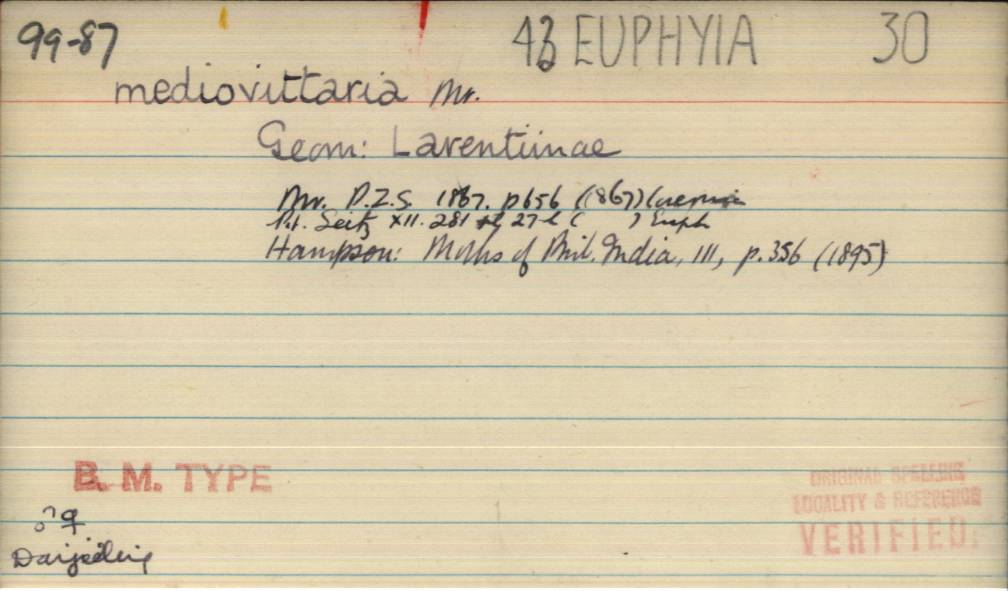 99-87 43 EUPHYIA 30
mediovittaria Mr.
Geom: Larentiinae
Mr. P.Z.S. 1867. p656 (1867)
Seitz XII. 281 27 ( ) Euph
Hampson: Moths of Brit. India, III, p.356 (1895)
B. M. TYPE
♂♀
Darjeeling
ORIGINAL SPELLING
LOCALITY & REFERENCE
VERIFIED.